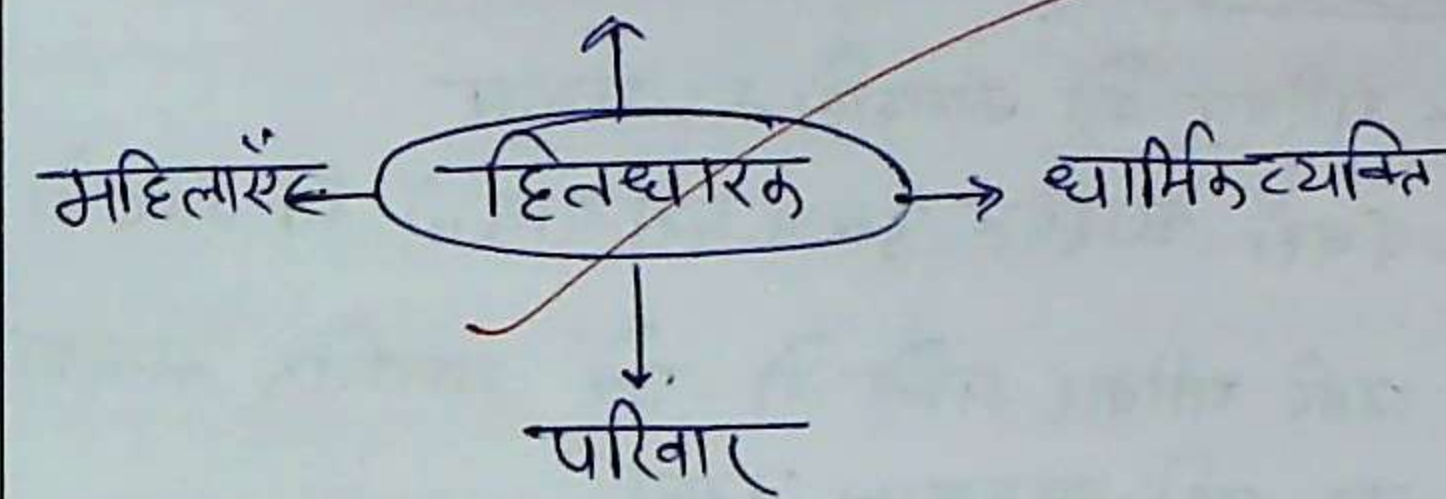 महिलाएँ हितधारक धार्मिक व्यक्ति
परिवार